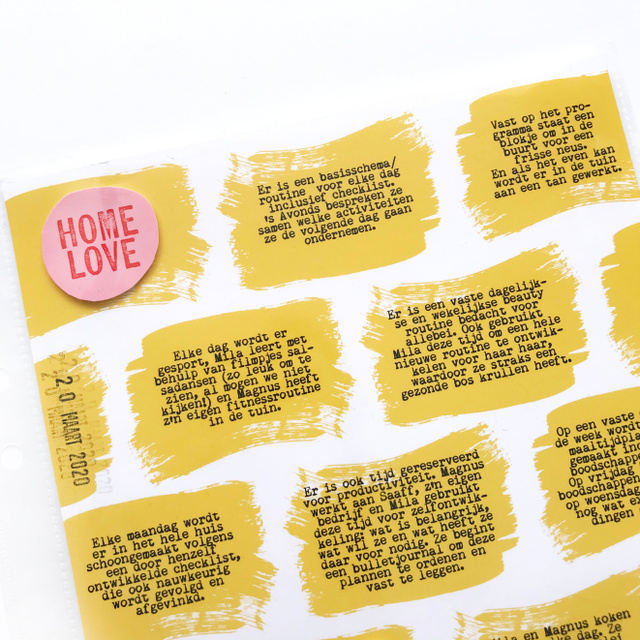 HOME
LOVE
Er is een basisschema/
routine voor elke dag
inclusief checklist.
's Avonds bespreken ze
samen welke activiteiten
ze de volgende dag gaan
ondernemen.
Vast op het pro-
gramma staat een
blokje om in de
buurt voor een
frisse neus.
En als het even kan
wordt er in de tuin
aan een tan gewerkt.
20 MAART 2020
Elke dag wordt er
gesport, Mila leert met
behulp van filmpjes sal-
sadansen (zo leuk om te
zien, al mogen we niet
kijken) en Magnus heeft
zijn eigen fitnessroutine
in de tuin.
Er is een vaste dagelijk-
se en wekelijkse beauty
routine bedacht voor
allebei. Ook gebruikt
Mila deze tijd om een hele
nieuwe routine te ontwik-
kelen voor haar haar,
waardoor ze straks een
gezonde bos krullen heeft.
Elke maandag wordt
er in het hele huis
schoongemaakt volgens
een door henzelf
ontwikkelde checklist,
die ook nauwkeurig
wordt gevolgd en
afgevinkt.
Er is ook tijd gereserveerd
voor productiviteit. Magnus
werkt aan Saaff, zijn eigen
bedrijf en Mila gebruikt
deze tijd voor zelfontwik-
keling; wat is belangrijk,
wat wil ze en wat heeft ze
daar voor nodig. Ze begint
een bulletjournal om deze
plannen te ordenen en
vast te leggen.
Op een vaste
de week wordt
maaltijdpl
gemaakt in
boodschappe
Op vrijdag
boodschappen
op woensdag
nog wat e
dingen
Mila en Magnus koken
elke dag. Ze